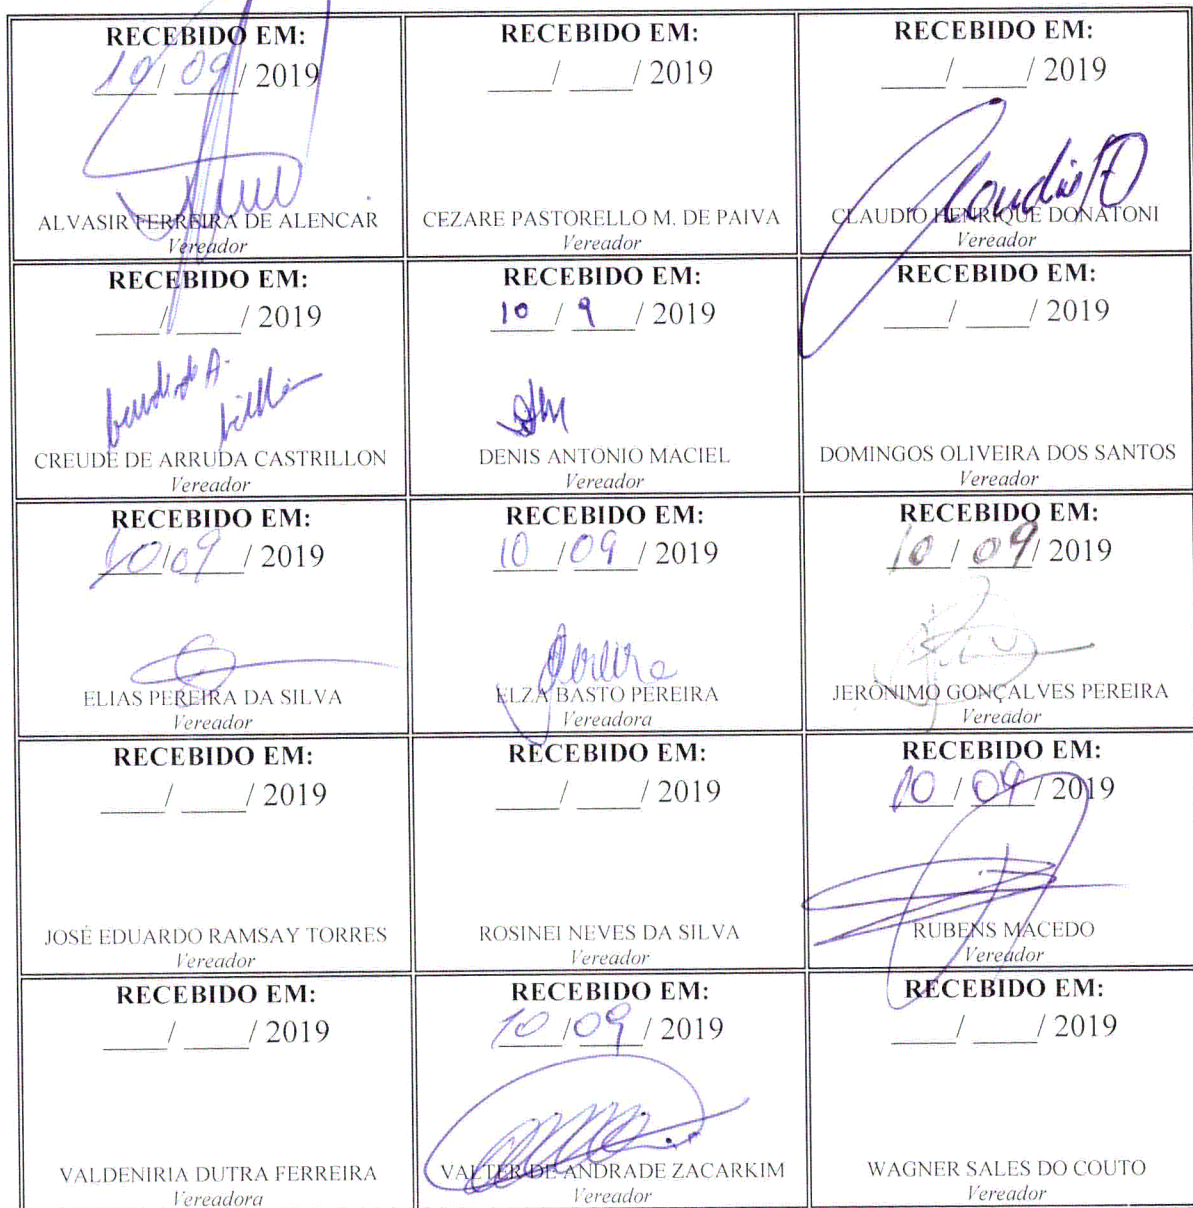 RECEBIDO EM:
10/ 09/ 2019
ALVASIR FERREIRA DE ALENCAR
Vereador
RECEBIDO EM:
____/ ____/ 2019
CEZARE PASTORELLO M. DE PAIVA
Vereador
RECEBIDO EM:
____/ ____/ 2019
ClaudioHD
CLAUDIO HENRIQUE DONATONI
Vereador
RECEBIDO EM:
____/ ____/ 2019
CREUDE DE ARRUDA CASTRILLON
Vereador
RECEBIDO EM:
10 / 9 / 2019
DENIS ANTONIO MACIEL
Vereador
RECEBIDO EM:
____/ ____/ 2019
DOMINGOS OLIVEIRA DOS SANTOS
Vereador
RECEBIDO EM:
10/09/ 2019
ELIAS PEREIRA DA SILVA
Vereador
RECEBIDO EM:
10 / 09 / 2019
ELZA BASTO PEREIRA
Vereadora
RECEBIDO EM:
10 / 09/ 2019
JERÔNIMO GONÇALVES PEREIRA
Vereador
RECEBIDO EM:
____/ ____/ 2019
JOSÉ EDUARDO RAMSAY TORRES
Vereador
RECEBIDO EM:
____/ ____/ 2019
ROSINEI NEVES DA SILVA
Vereador
RECEBIDO EM:
10 / 09 / 2019
RUBENS MACEDO
Vereador
RECEBIDO EM:
____/ ____/ 2019
VALDENIRIA DUTRA FERREIRA
Vereadora
RECEBIDO EM:
10 /09 / 2019
VALTER DE ANDRADE ZACARKIM
Vereador
RECEBIDO EM:
____/ ____/ 2019
WAGNER SALES DO COUTO
Vereador